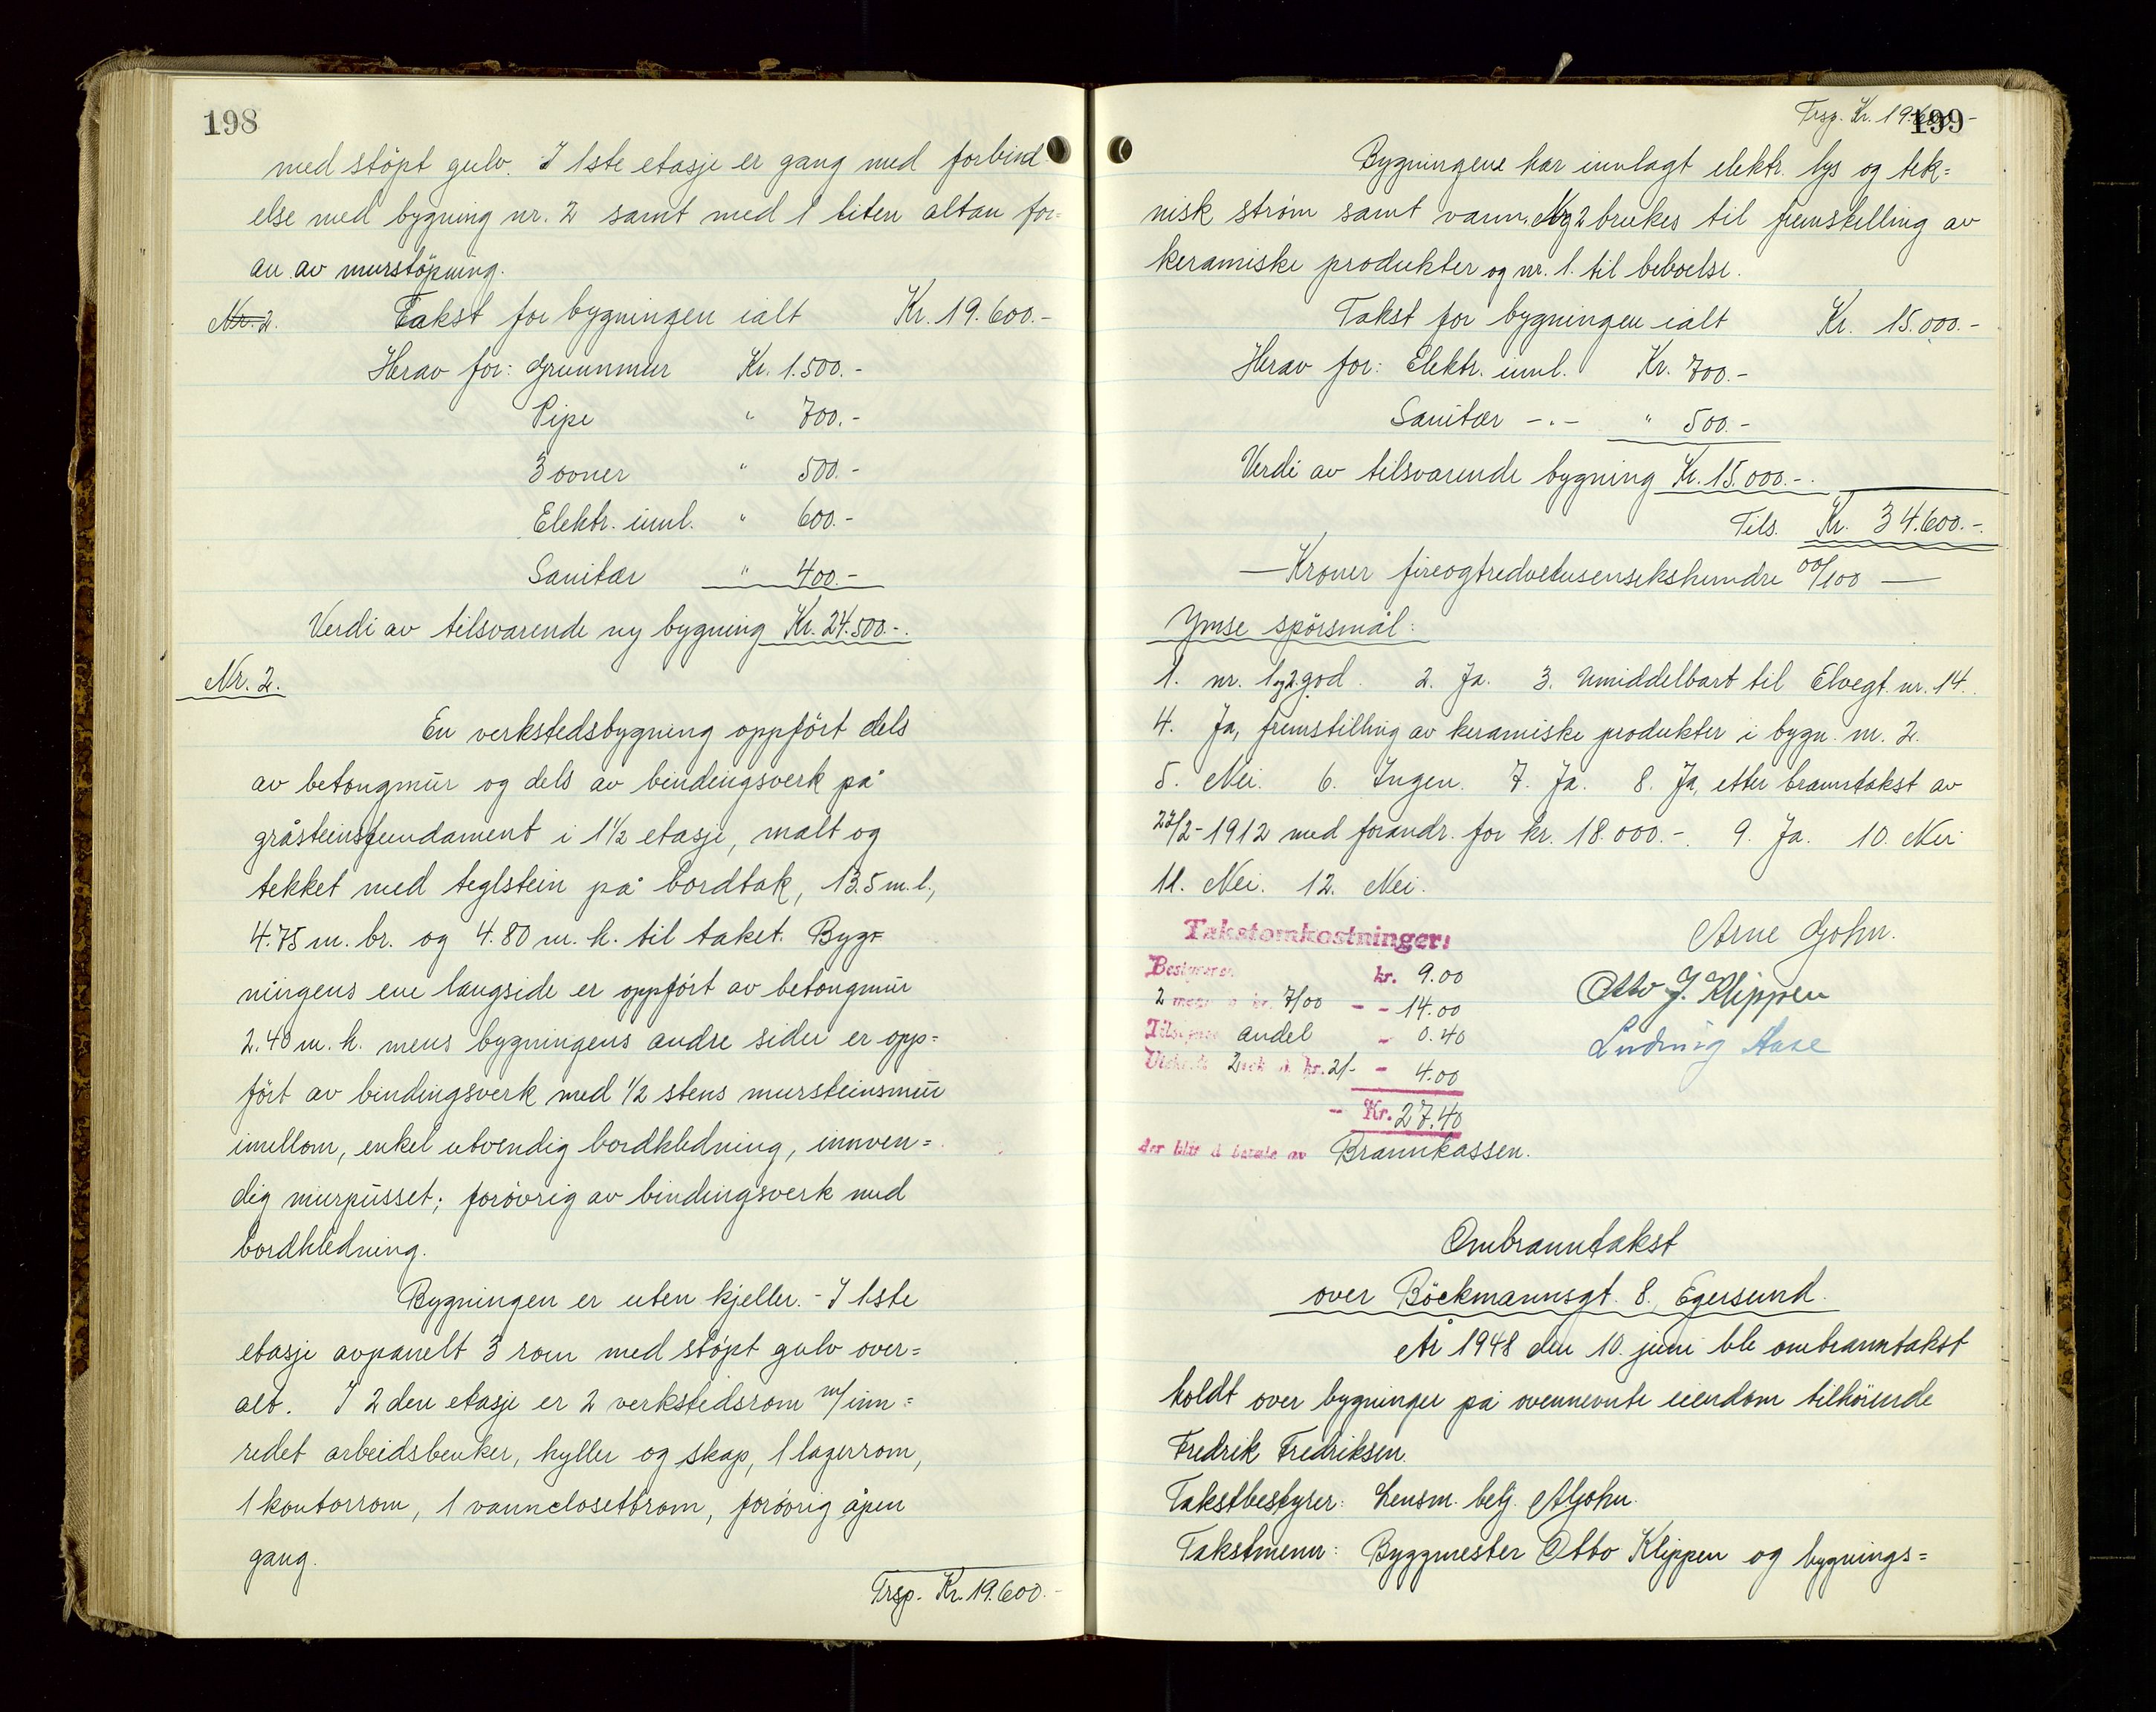 198
med støpt gulv. I 1ste etasje er gang med forbind
else med bygning nr. 2 samt med 1 liten altan for=
an av murstøpning.
Nr. 2. Takst for bygningen ialt Kr. 19.600.-
Herav for: Grunnmur Kr. 1.500.-
Pipe " 700.-
3 ovner " 500.-
Elektr. innl. " 600.-
Sanitær " 400.-
Verdi av tilsvarende ny bygning Kr. 24.500.-.
Nr. 2.
En verkstedsbygning oppført dels
av betongmur og dels av bindingsverk på
gråsteinsfundament i 1½ etasje, malt og
tekket med teglstein på bordtak, 13.5 m. l.,
4.75 m. br. og 4.80 m. h. til taket. Byg=
ningens ene langside er oppført av betongmur
2.40 m. h. mens bygningens andre sider er opp=
ført av bindingsverk med ½ stens mursteinsmur
imellom, enkel utvendig bordkledning, innven=
dig murpusset; forøvrig av bindingsverk med
bordkledning.
Bygningen er uten kjeller. - I 1ste
etasje avpanelt 3 rom med støpt gulv over=
alt. I 2den etasje er 2 verkstedsrom m/inn=
redet arbeidsbenker, hyller og skap, 1 lagerrom,
1 kontorrom, 1 vannclosettrom, forøvrig åpen
gang.
Trsp. Kr. 19.600.-
Trsp. Kr. 19.600.-
199
Bygningene har innlagt elektr. lys og tek=
nisk strøm samt vann. Nr 2 brukes til fremstilling av
keramiske produkter og nr. 1. til beboelse.
Takst for bygningen ialt Kr. 15.000.-
Herav for: Elektr. innl. Kr. 700.-
Sanitær -"- " 500.-
Verdi av tilsvarende bygning Kr. 15.000.-.
Tils. Kr. 34.600.-
— Kroner fireogtredvetusensekshundre 00/100 —
Ymse spørsmål:
1. nr. 1 og 2. god. 2. Ja. 3. Umiddelbart til Elvegt. nr. 14.
4. Ja, fremstilling av keramiske produkter i bygn. nr. 2.
5. Nei. 6. Ingen. 7. Ja. 8. Ja, etter branntakst av
22/2-1912 med forandr. for kr. 18.000.-. 9. Ja. 10. Nei
11. Nei. 12. Nei.
Takstomkostninger:
Bestyreren kr. 9.00
2 menn à kr. 7/00 - - 14.00
andel - 0.40
2 à kr. 2/- - 4.00
- Kr. 27.40
der blir å betale av Brannkassen.
Arne Gohn.
Otto J. Klippen
Ludvig Aase
Ombranntakst
over Böckmannsgt. 8. Egersund.
År 1948 den 10. juni ble ombranntakst
holdt over bygninger på ovennevnte eiendom tilhörende
Fredrik Fredriksen.
Takstbestyrer: Lensm. betj. AGohn.
Takstmenn: Byggmester Otto Klippen og bygnings=